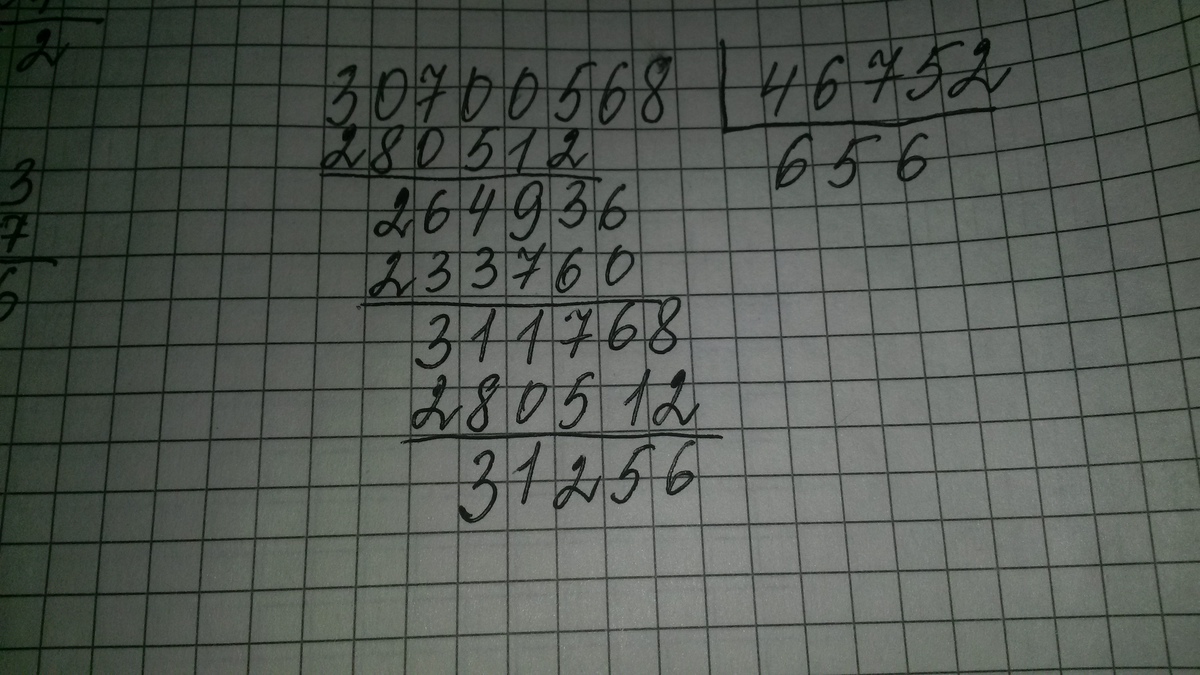 2
3
7
6
30700568 46752
280512 656
264936
233760
311768
280512
31256